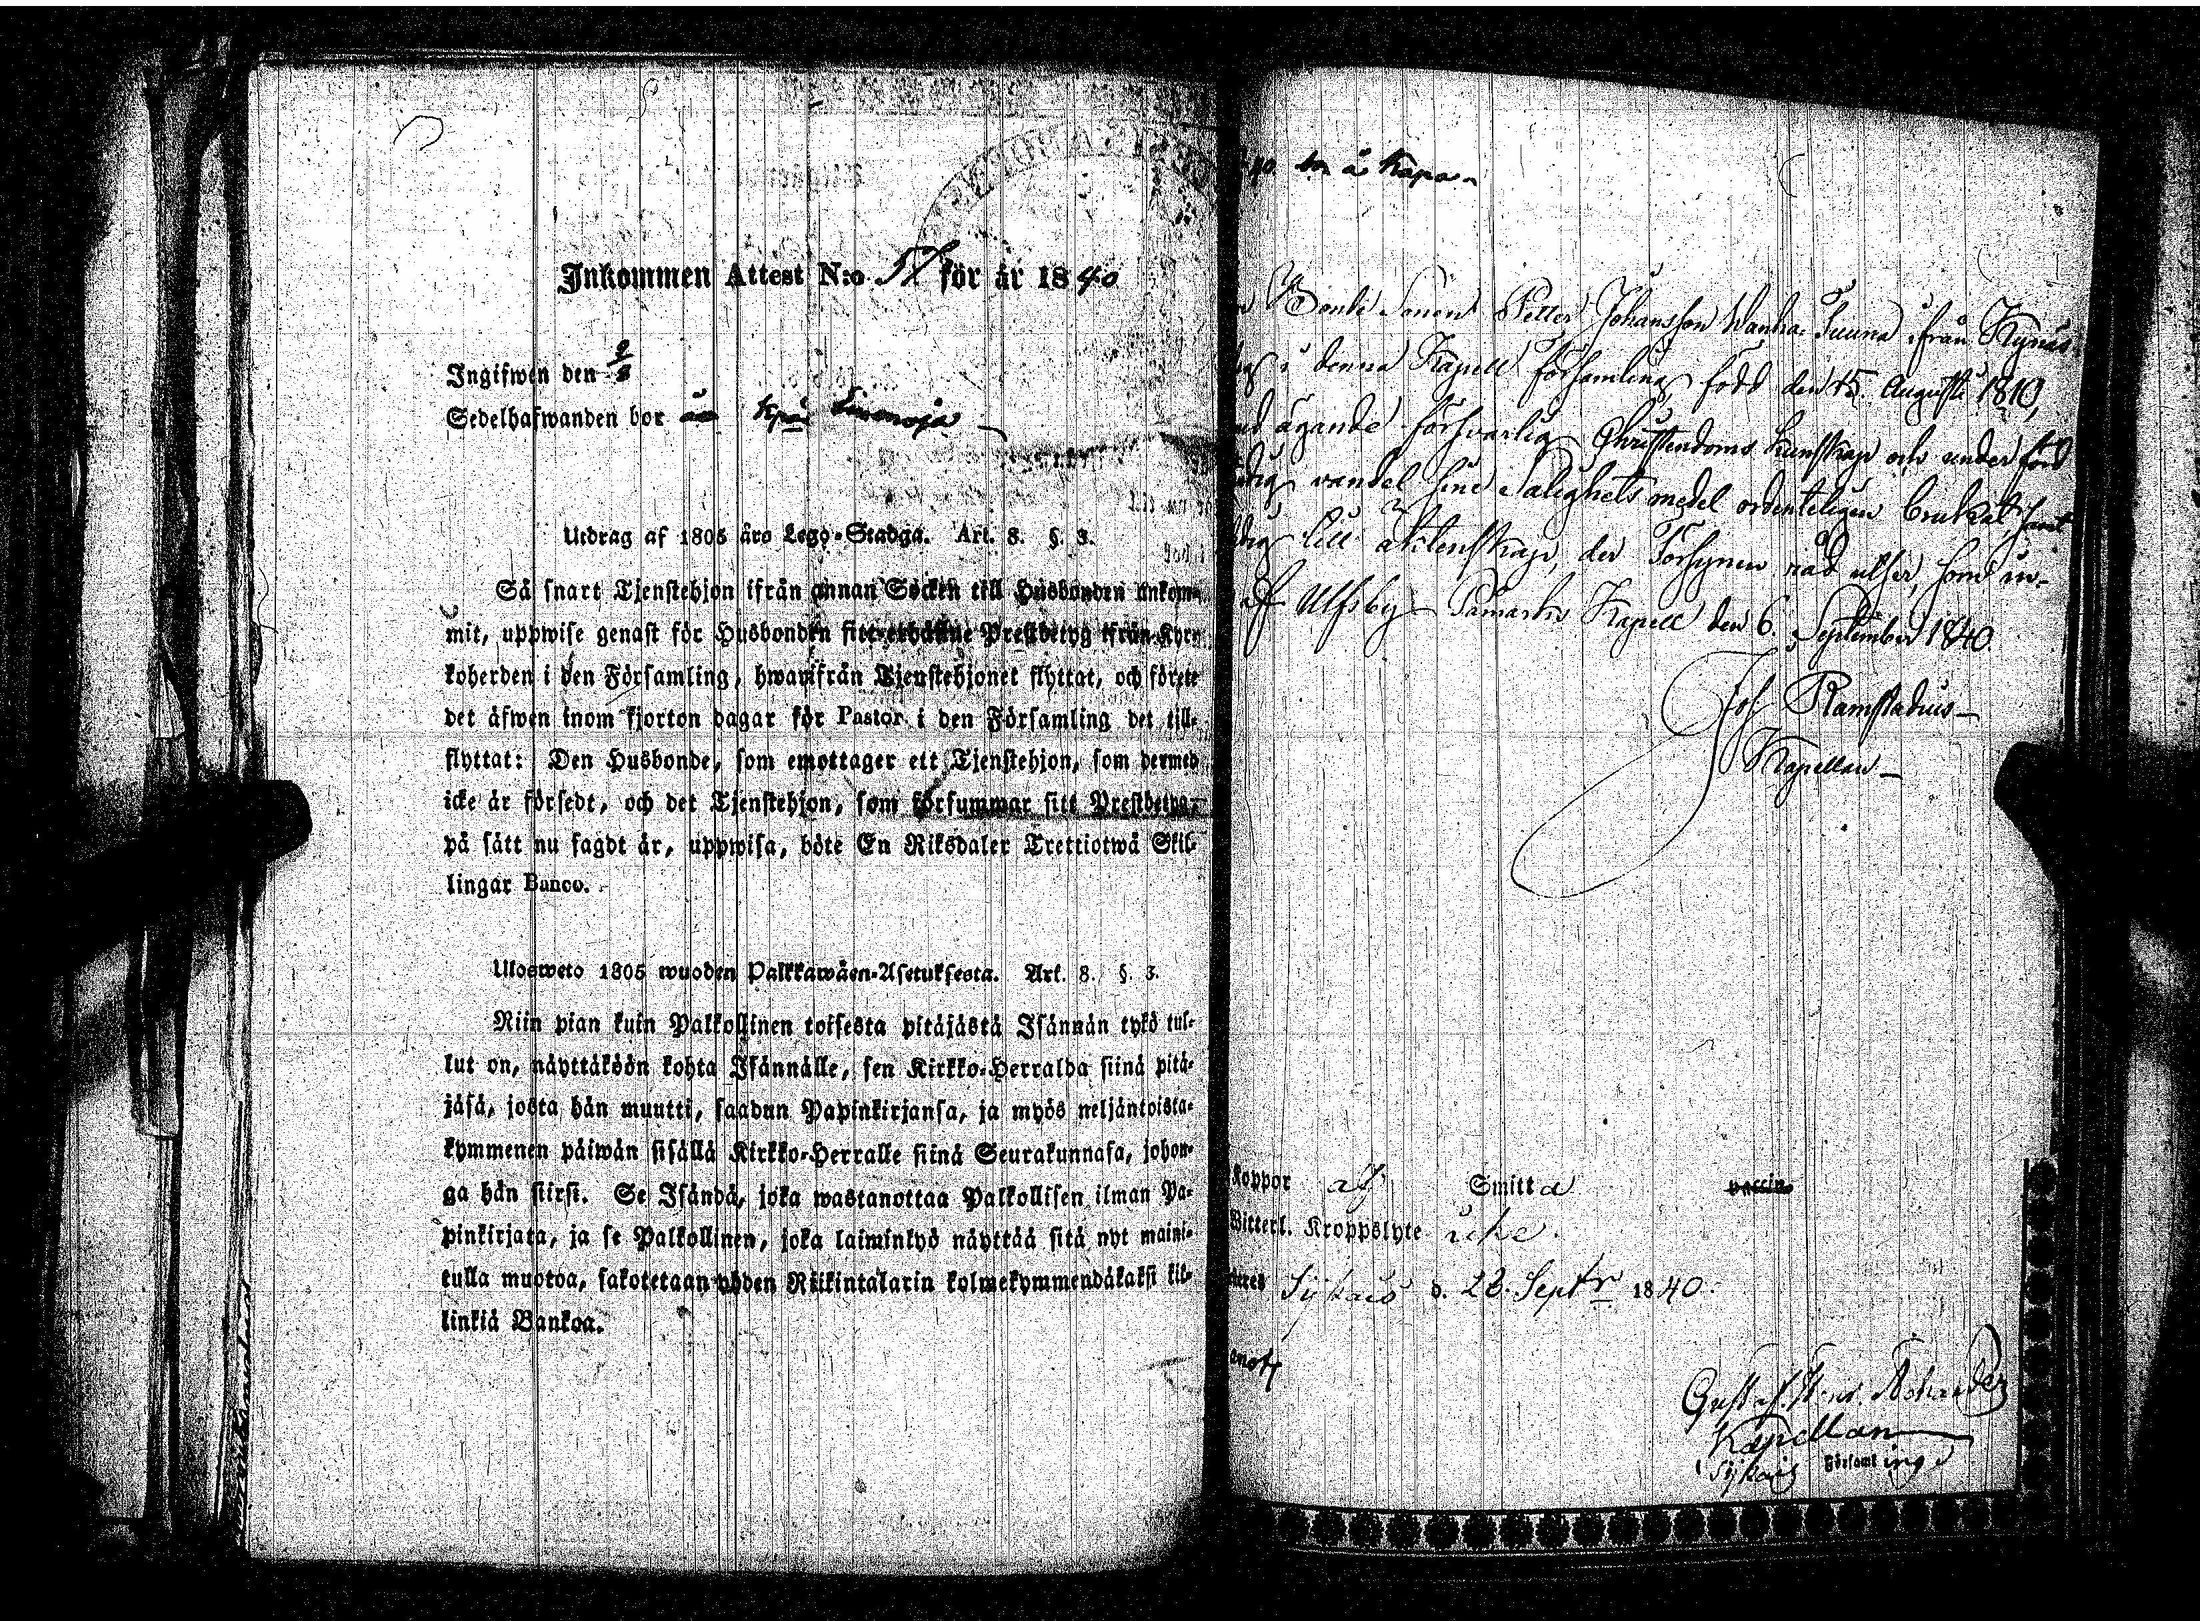 Inkommen Attest N:o 57 för år 1840
Ingifwen den
Sedelhafwanden bor
Utdrag af 1805 års Lego-Stadga. Art. 8. §. 3.
Så snart Tjenstehjon ifrån annan Socken till Husbonden ankom-
mit, uppwise genast för Husbonden sitt erhållne Prestbetyg ifrån Kyr-
koherden i den Församling, hwarifrån Tjenstehjonet flyttat, och förete
det äfwen inom fjorton dagar för Pastor i den Församling det till-
flyttat: Den Husbonde, som emottager ett Tjenstehjon, som dermed
icke är försedt, och det Tjenstehjon, som försummar sitt Prestbetyg,
på sätt nu sagdt är, uppwisa, böte En Riksdaler Trettiotwå Skil-
lingar Banco.
Ulosweto 1805 wuoden Palkkawäen-Asetuksesta. Art. 8. §. 3.
Niin pian kuin Palkollinen toisesta pitäjästä Isännän tykö tul-
lut on, näyttäköön kohta Isännälle, sen Kirkko-Herralda siinä pitä-
jäsä, josta hän muutti, saadun Papinkirjansa, ja myös neljäntoista-
kymmenen päiwän sisällä Kirkko-Herralle siinä Seurakunnasa, johon-
ga hän siirsi. Se Isändä, joka wastanottaa Palkollisen ilman Pa-
pinkirjata, ja se Palkollinen, joka laiminlyö näyttää sitä nyt maini-
tulla muotoa, sakotetaan yhden Riikintalarin kolmekymmendäkaksi kil-
linkiä Bankoa.
40. bor å Kapa
Bonde Sonen Petter Johansson Wanha Tuuna ifrån Kynäs-
i denna Kapell Församling, född den 15. Augusti 1810,
ägande försvarlig Christendoms kunskap och under
vandel sine Salighets medel ordenteligen brukat samt
till äktenskap, der Försynen råd utser, som in-
af Ulfsby Påmarks Kapell den 6. September 1840.
Joh Ramstadius
Kapellan
koppor af Smitta
Witterl. Kroppslyte icke.
Sijkais d. 28. Septr 1840.
Kapellan
Sijkais Församling